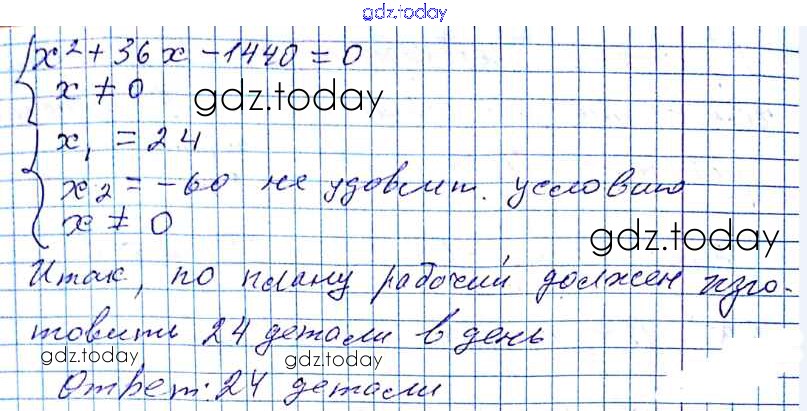 gdz.today
x² + 36x - 1440 = 0
x ≠ 0
gdz.today
x₁ = 24
x₂ = -60 не удовлит. условию
x ≠ 0
gdz.today
Итак, по плану рабочий должен изго-
товить 24 детали в день
gdz.today
gdz.today
Ответ: 24 детали